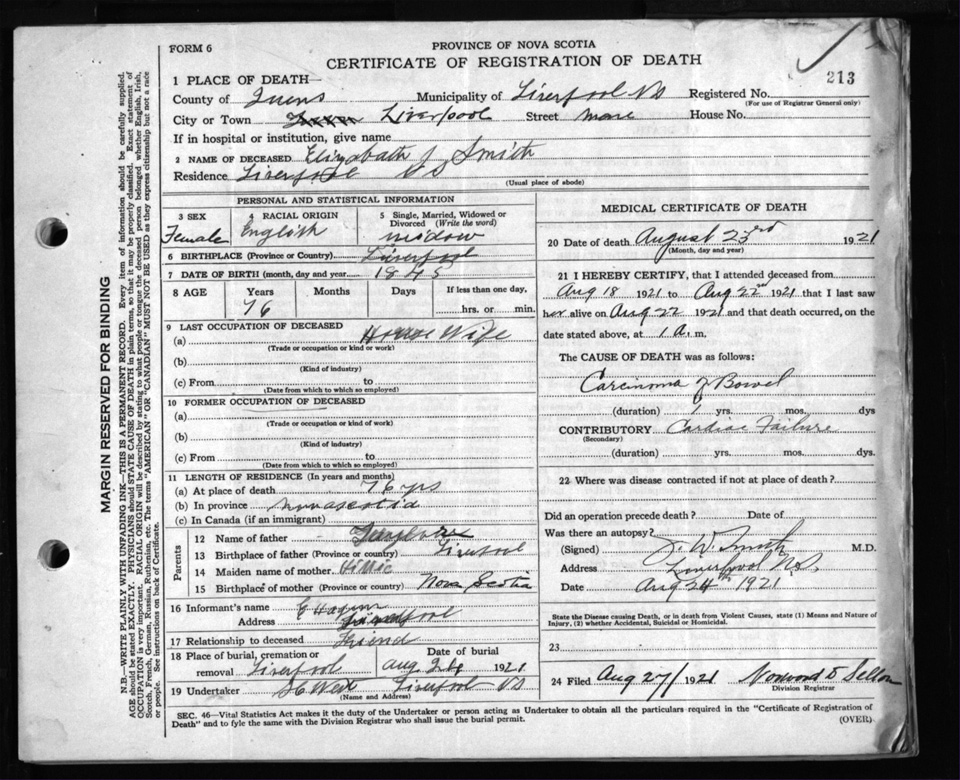 FORM 6
PROVINCE OF NOVA SCOTIA
CERTIFICATE OF REGISTRATION OF DEATH
213
1 PLACE OF DEATH—
County of Queens Municipality of Liverpool NS Registered No.
(For use of Registrar General only)
City or Town Liverpool Street House No.
If in hospital or institution, give name
2 NAME OF DECEASED Elizabeth J Smith
Residence Liverpool NS
(Usual place of abode)
PERSONAL AND STATISTICAL INFORMATION
3 SEX Female
4 RACIAL ORIGIN English
5 Single, Married, Widowed or Divorced (Write the word) Widow
6 BIRTHPLACE (Province or Country) Liverpool
7 DATE OF BIRTH (month, day and year) 1845
8 AGE Years Months Days If less than one day,
76 hrs. or min.
9 LAST OCCUPATION OF DECEASED
(a) House Wife
(Trade or occupation or kind or work)
(b)
(Kind of industry)
(c) From to
(Date from which to which so employed)
10 FORMER OCCUPATION OF DECEASED
(a)
(Trade or occupation or kind of work)
(b)
(Kind of industry)
(c) From to
(Date from which to which so employed)
11 LENGTH OF RESIDENCE (In years and months)
(a) At place of death 76 yrs
(b) In province Nova Scotia
(c) In Canada (if an immigrant)
Parents
12 Name of father
13 Birthplace of father (Province or country) Liverpool
14 Maiden name of mother
15 Birthplace of mother (Province or country) Nova Scotia
16 Informant's name
Address Liverpool
17 Relationship to deceased Friend
18 Place of burial, cremation or removal Liverpool
Date of burial Aug 24 1921
19 Undertaker West Liverpool NS
(Name and Address)
MEDICAL CERTIFICATE OF DEATH
20 Date of death August 23rd 1921
(Month, day and year)
21 I HEREBY CERTIFY, that I attended deceased from
Aug 18 1921 to Aug 22nd 1921 that I last saw
her alive on Aug 22 1921 and that death occurred, on the
date stated above, at 1 a. m.
The CAUSE OF DEATH was as follows:
Carcinoma of Bowel
(duration) 1 yrs. mos. dys
CONTRIBUTORY Cardiac Failure
(Secondary)
(duration) yrs. mos. dys.
22 Where was disease contracted if not at place of death?
Did an operation precede death? Date of
Was there an autopsy?
(Signed) J. W. Smith M.D.
Address Liverpool N.S.
Date Aug 24th 1921
State the Disease causing Death, or in death from Violent Causes, state (1) Means and Nature of
Injury, (2) whether Accidental, Suicidal or Homicidal.
23
24 Filed Aug 27/ 1921
Division Registrar
SEC. 46—Vital Statistics Act makes it the duty of the Undertaker or person acting as Undertaker to obtain all the particulars required in the "Certificate of Registration of
Death" and to fyle the same with the Division Registrar who shall issue the burial permit.
(OVER)
MARGIN RESERVED FOR BINDING
N.B.—WRITE PLAINLY WITH UNFADING INK—THIS IS A PERMANENT RECORD. Every item of information should be carefully supplied.
AGE should be stated EXACTLY. PHYSICIANS should STATE CAUSE OF DEATH in plain terms, so that it may be properly classified. Exact statement of
OCCUPATION is very important. RACIAL ORIGIN will be described by stating to what people or tongue the deceased person belonged whether English, Irish,
Scotch, French, German, Russian, Ruthenian, etc. The terms "AMERICAN" OR "CANADIAN" MUST NOT BE USED as they express citizenship but not a race
or people. See instructions on back of Certificate.